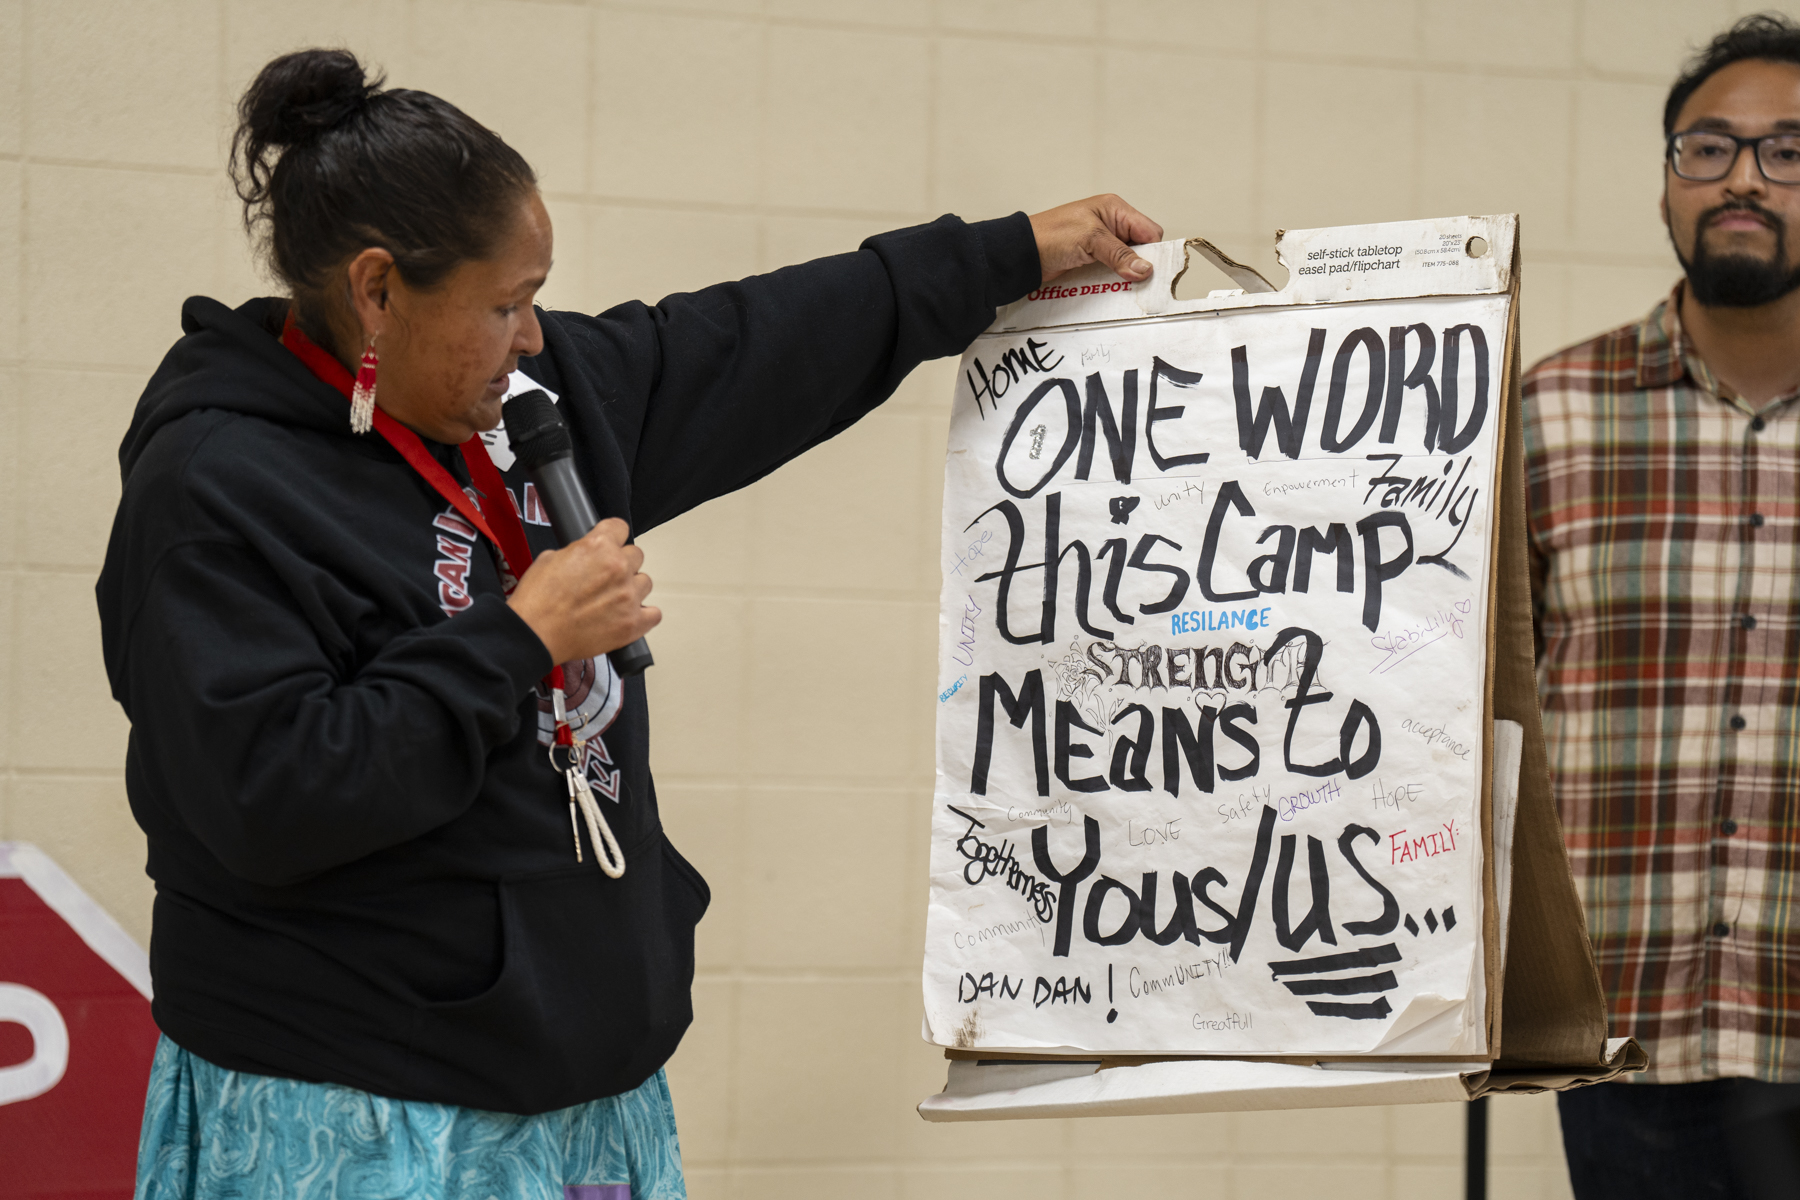 self-stick tabletop
easel pad/flipchart
20 sheets
20"x23"
(50.8cm x 58.4cm)
ITEM 775-088
Office DEPOT.
HOME
ONE WORD
unity
Empowerment
Family
this Camp
Hope
UNITY
RESILANCE
Stability
STRENGTH
SECURITY
MEaNS to
acceptance
Community
LOVE
Safety
GROWTH
HOPE
Togetherness
Yous/US...
FAMILY:
Community
DAN DAN!
CommUNITY!!
Greatfull
CAN